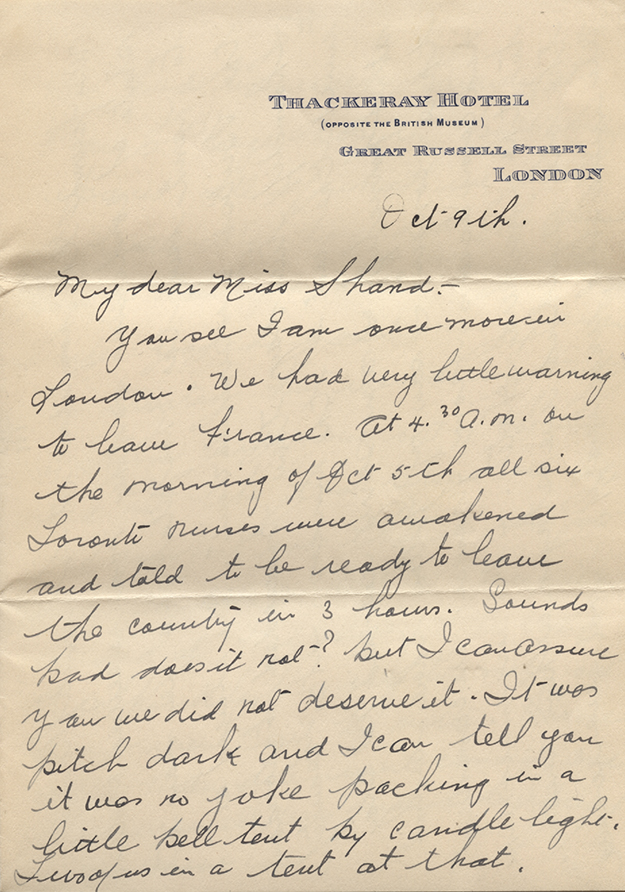 THACKERAY HOTEL
(OPPOSITE THE BRITISH MUSEUM)
GREAT RUSSELL STREET
LONDON
Oct 9th.
My dear Miss Shand.-
You see I am once more in
London. We had very little warning
to leave France. At 4.30 a.m. on
the morning of Oct 5th all six
Toronto nurses were awakened
and told to be ready to leave
the country in 3 hours. Sounds
bad does it not? but I can assure
you we did not deserve it. It was
pitch dark and I can tell you
it was no joke packing in a
little bell tent by candle light.
Two of us in a tent at that.